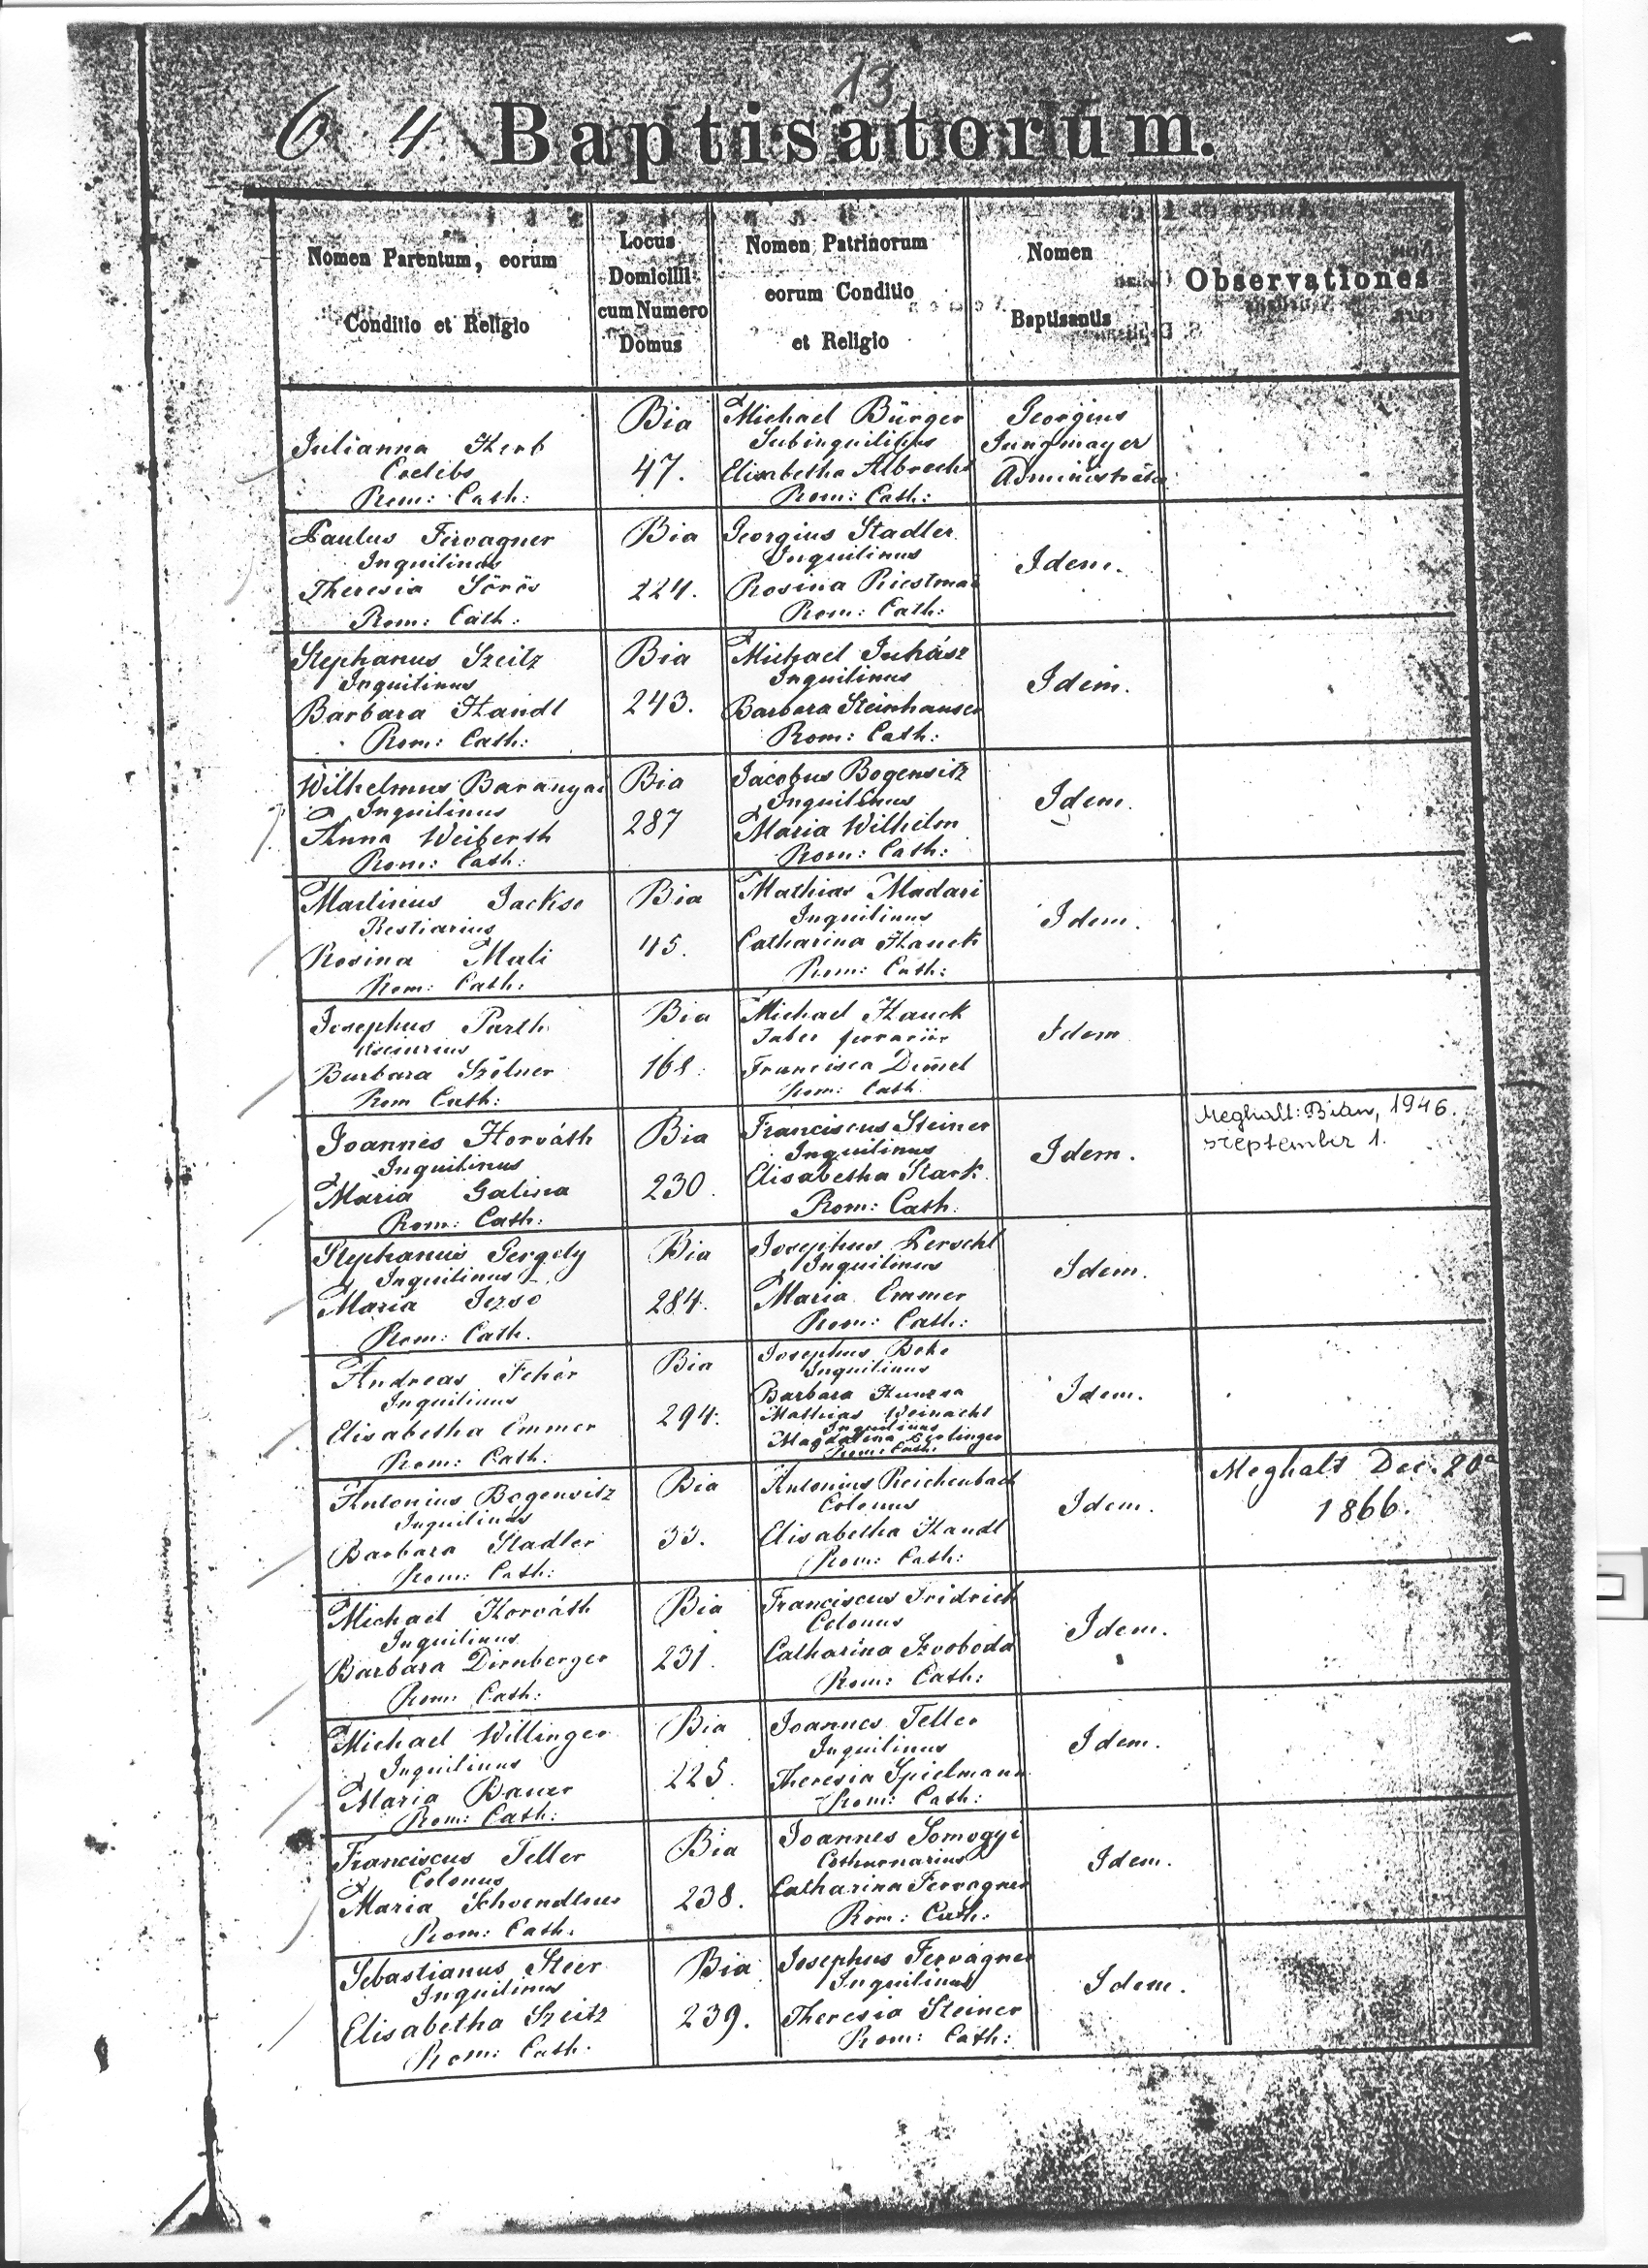 13
6 4 Baptisatorum.
Nomen Parentum, eorum
Conditio et Religio
Locus
Domicilii
cum Numero
Domus
Nomen Patrinorum
eorum Conditio
et Religio
Nomen
Baptisantis
Observationes
Julianna Herb
Caelebs
Rom: Cath:
Bia
47.
Michael Bürger
Subinquilinus
Elisabetha Albrecht
Rom: Cath:
Georgius
Jungmayer
Administrator
Paulus Fervagner
Inquilinus
Theresia Sörös
Rom: Cath:
Bia
224.
Georgius Stadler
Inquilinus
Rosina
Rom: Cath:
Idem.
Stephanus Szeitz
Inquilinus
Barbara Handl
Rom: Cath:
Bia
243.
Michael Juhász
Inquilinus
Barbara Steinhauser
Rom: Cath:
Idem.
Wilhelmus Baranyai
Inquilinus
Anna Weiberth
Rom: Cath:
Bia
287
Jacobus Bogensitz
Inquilinus
Maria Wilhelm
Rom: Cath:
Idem.
Martinus
Restiarius
Rosina Mali
Rom: Cath:
Bia
45.
Mathias Madari
Inquilinus
Catharina Hauck
Rom: Cath:
Idem.
Josephus Parth
Barbara Szölner
Rom Cath:
Bia
168.
Michael Hauck
Faber ferrarius
Francisca
Rom: Cath.
Idem
Joannes Horváth
Inquilinus
Maria Galina
Rom: Cath:
Bia
230.
Franciscus Steiner
Inquilinus
Elisabetha Stark.
Rom: Cath.
Idem.
Meghalt: Bián, 1946.
szeptember 1.
Stephanus Gergely
Inquilinus
Maria Jezsó
Rom: Cath.
Bia
284.
Josephus Perschl
Inquilinus
Maria Emmer
Rom: Cath:
Idem.
Andreas Fehér
Inquilinus
Elisabetha Emmer
Rom: Cath.
Bia
294.
Josephus Beke
Inquilinus
Barbara
Mathias Weinachl
Inquilinus
Magdalena
Rom: Cath:
Idem.
Antonius Bogensitz
Inquilinus
Barbara Stadler
Rom: Cath:
Bia
33.
Antonius Reichenbach
Colonus
Elisabetha Handl
Rom: Cath:
Idem.
Meghalt Dec. 20ª
1866.
Michael Horváth
Inquilinus
Barbara Dirnberger
Rom: Cath:
Bia
231.
Franciscus Fridrich
Colonus
Catharina Szvoboda
Rom: Cath:
Idem.
Michael Willinger
Inquilinus
Maria Bauer
Rom: Cath:
Bia
225.
Joannes Teller
Inquilinus
Theresia Spielmann
Rom: Cath:
Idem.
Franciscus Teller
Colonus
Maria
Rom: Cath.
Bia
238.
Joannes Somogyi
Cothurnarius
Catharina Fervagner
Rom: Cath:
Idem.
Sebastianus Steer
Inquilinus
Elisabetha Szeitz
Rom: Cath.
Bia
239.
Josephus Fervagner
Inquilinus
Theresia Steiner
Rom: Cath:
Idem.